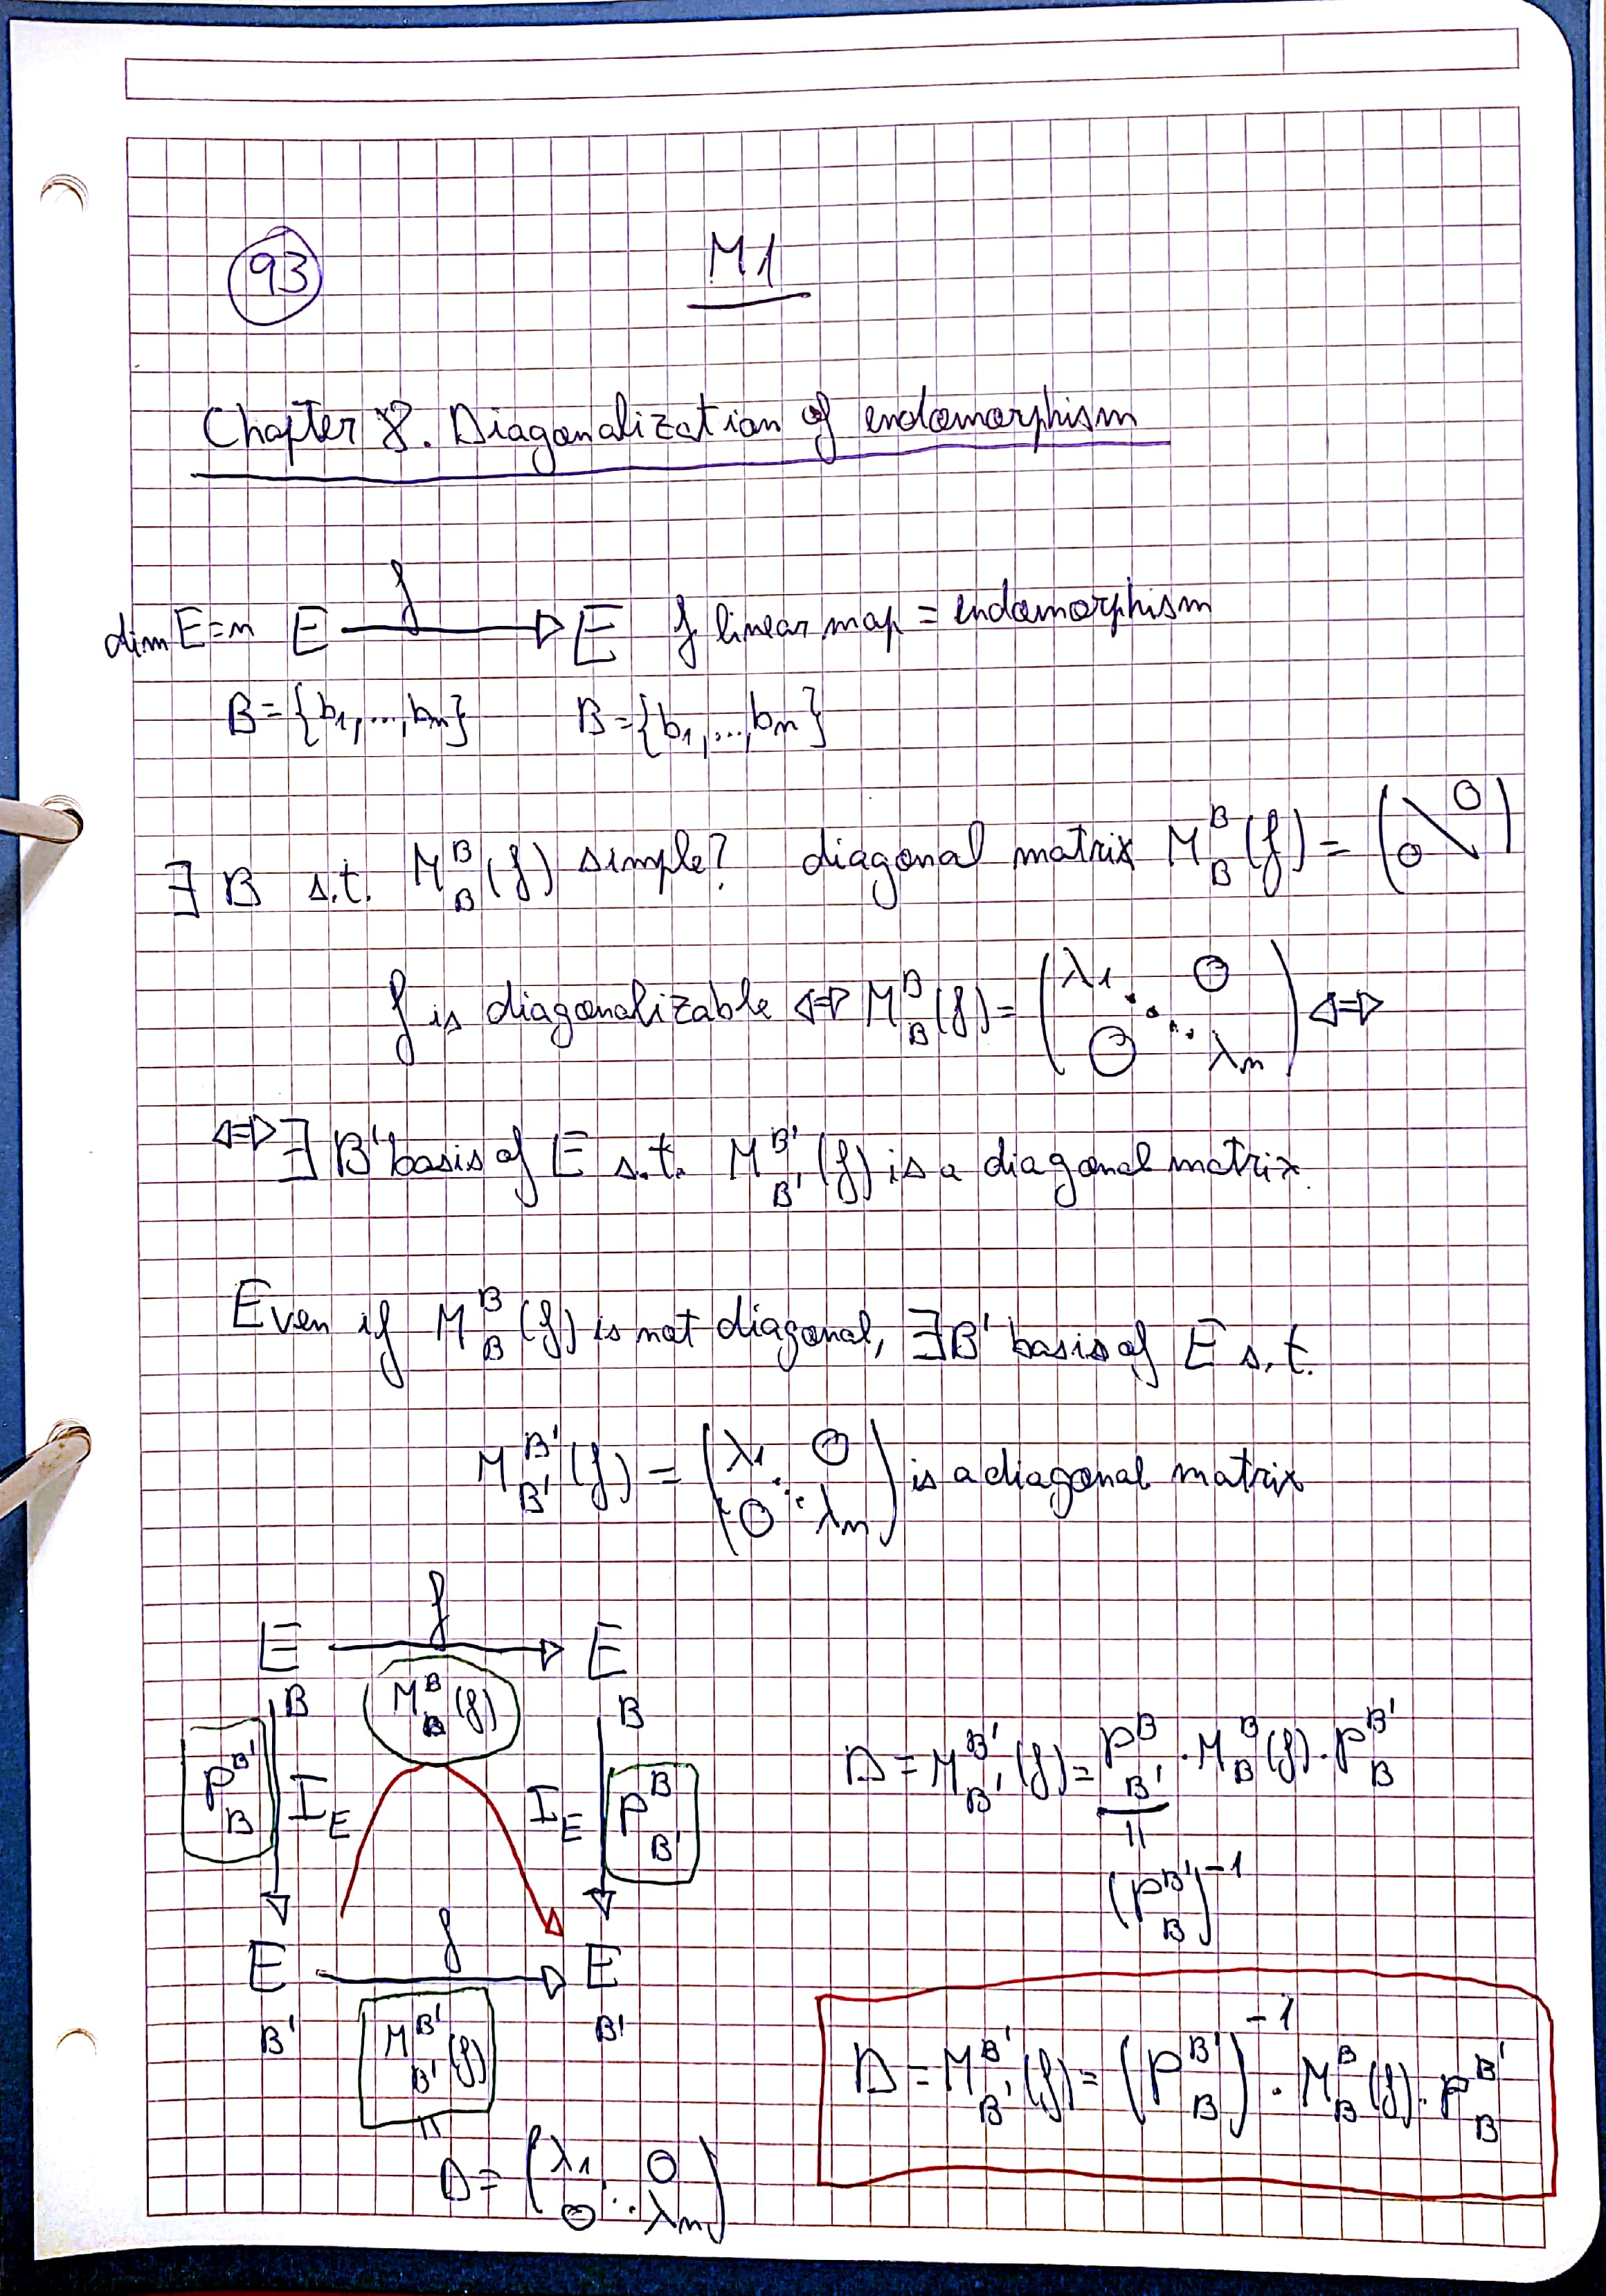 93
M1
Chapter 8. Diagonalization of endomorphism
f
dim E=n E → E f linear map = endomorphism
B={b₁,...,bₙ} B={b₁,...,bₙ}
∃ B s.t. M_B^B(f) simple? diagonal matrix M_B^B(f) = (\ 0 0)
f is diagonalizable ⇔ M_B^B(f) = (λ₁ 0 ⋱ 0 λₙ) ⇔
⇔ ∃ B' basis of E s.t. M_{B'}^{B'}(f) is a diagonal matrix.
Even if M_B^B(f) is not diagonal, ∃B' basis of E s.t.
M_{B'}^{B'}(f) = (λ₁ 0 ⋱ 0 λₙ) is a diagonal matrix
f
E → E
B M_B^B(f) B
P_B^{B'} I_E I_E P_{B'}^B
D = M_{B'}^{B'}(f) = P_{B'}^B · M_B^B(f) · P_B^{B'}
=
(P_B^{B'})^{-1}
f
E → E
B' M_{B'}^{B'}(f) B'
=
D = (λ₁ 0 ⋱ 0 λₙ)
D = M_{B'}^{B'}(f) = (P_B^{B'})^{-1} · M_B^B(f) · P_B^{B'}